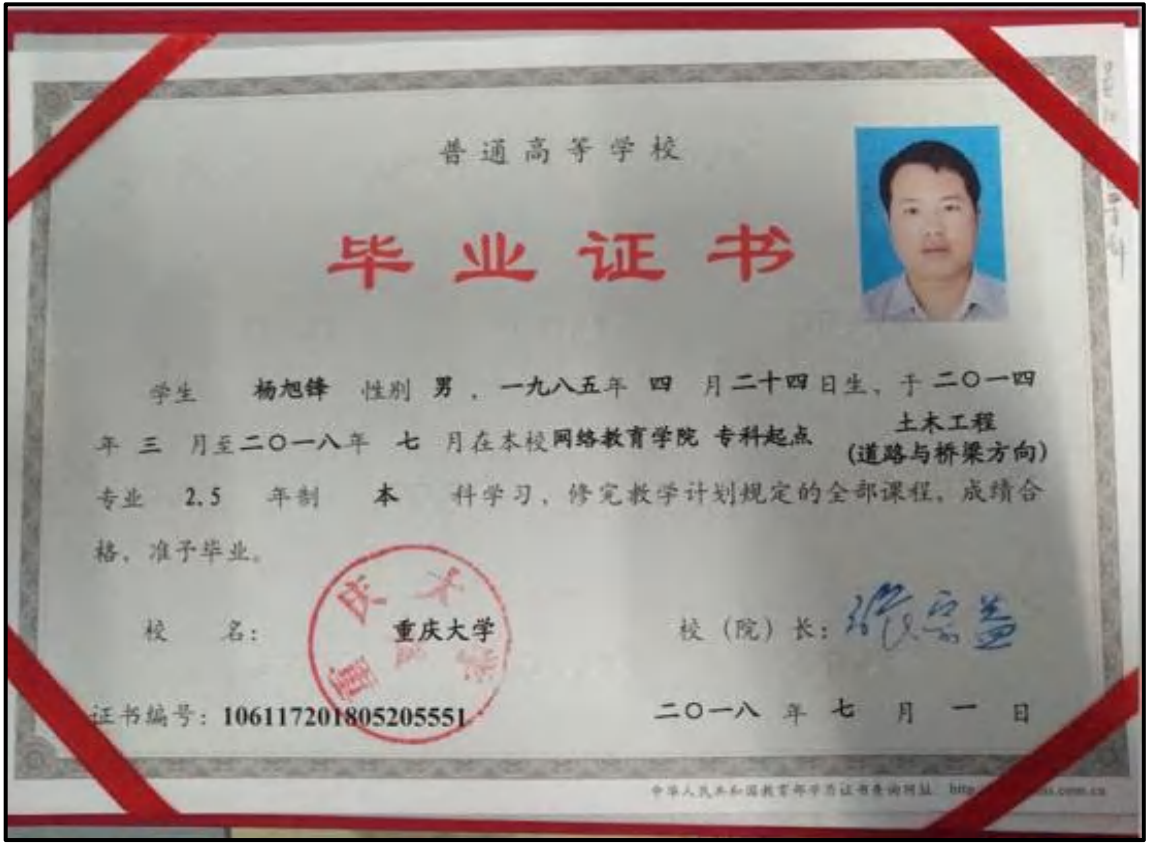 普通高等学校
毕业证书
学生 杨旭锋 性别 男，一九八五年 四 月二十四日生、于 二〇一四
年 三 月至二〇一八年 七 月在本校网络教育学院 专科起点 土木工程
(道路与桥梁方向)
专业 2.5 年制 本 科学习，修完教学计划规定的全部课程，成绩合
格，准予毕业。
校 名： 重庆大学
校（院）长：张宗益
重庆大学
证书编号：106117201805205551
二〇一八 年 七 月 一 日
中华人民共和国教育部学历证书查询网址 http
.com.cn